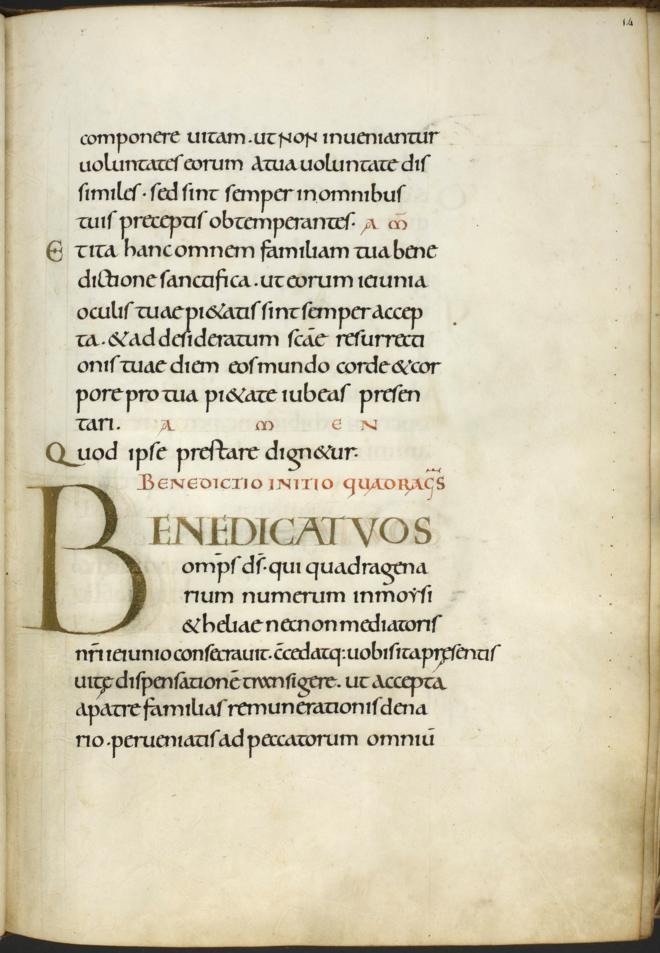 14
componere uitam. ut NON inueniantur
uoluntates eorum A tua uoluntate dis
similes. sed sint semper in omnibus
tuis preceptis obtemperantes. A m̄
Et ita hanc omnem familiam tua bene
dictione sanctifica. ut eorum ieiunia
oculis tuae pi&atis sint semper accep
ta. & ad desideratum scāe resurrecti
onis tuae diem eos mundo corde & cor
pore pro tua pi&ate iubeas presen
tari. A M E N
Quod ipse prestare dign&ur.
BENEDICTIO INITIO QUADRAGS
BENEDICAT VOS
omp̄s ds̄. qui quadragena
rium numerum in moẏsi
& heliae necnon mediatoris
nr̄i ieiunio consecrauit. c̄cedatq: uobis ita pręsentis
uitę dispensationē transigere. ut accepta
a patre familias remunerationis dena
rio. perueniatis ad peccatorum omniū